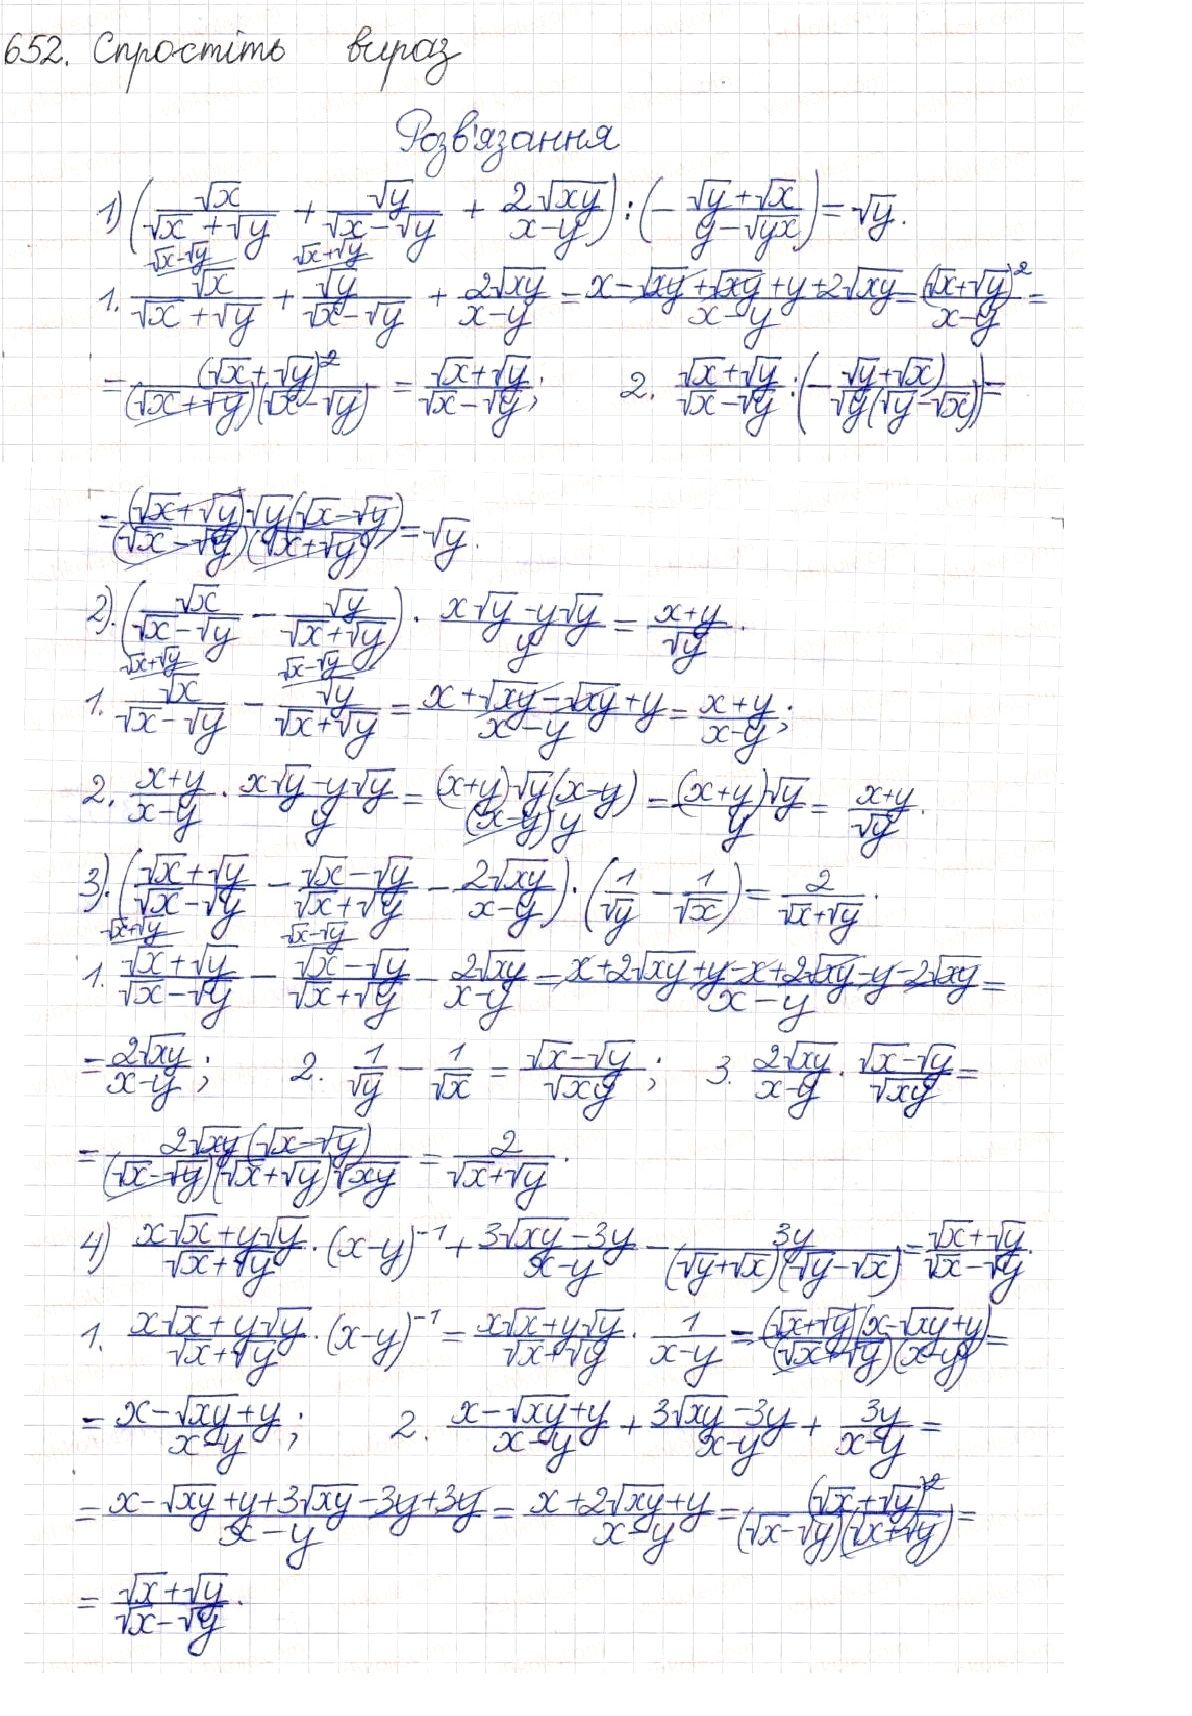 652. Спростіть вираз
Розв'язання
1) (√x/(√x+√y) + √y/(√x-√y) + 2√xy/(x-y)) : (-(√y+√x)/(y-√yx)) = √y.
√x-√y √x+√y
1. √x/(√x+√y) + √y/(√x-√y) + 2√xy/(x-y) = (x-√xy+√xy+y+2√xy)/(x-y) = (√x+√y)²/(x-y) =
= (√x+√y)²/((√x+√y)(√x-√y)) = (√x+√y)/(√x-√y); 2. (√x+√y)/(√x-√y) : (-(√y+√x)/(√y(√y-√x))) =
= ((√x+√y)√y(√x-√y))/((√x-√y)(√x+√y)) = √y.
2). (√x/(√x-√y) - √y/(√x+√y)) · (x√y-y√y)/y = (x+y)/√y.
√x+√y √x-√y
1. √x/(√x-√y) - √y/(√x+√y) = (x+√xy-√xy+y)/(x-y) = (x+y)/(x-y);
2. (x+y)/(x-y) · (x√y-y√y)/y = ((x+y)√y(x-y))/((x-y)y) = ((x+y)√y)/y = (x+y)/√y.
3). ((√x+√y)/(√x-√y) - (√x-√y)/(√x+√y) - 2√xy/(x-y)) · (1/√y - 1/√x) = 2/(√x+√y).
√x+√y √x-√y
1. (√x+√y)/(√x-√y) - (√x-√y)/(√x+√y) - 2√xy/(x-y) = (x+2√xy+y-x+2√xy-y-2√xy)/(x-y) =
= 2√xy/(x-y); 2. 1/√y - 1/√x = (√x-√y)/√xy; 3. 2√xy/(x-y) · (√x-√y)/√xy =
= (2√xy(√x-√y))/((√x-√y)(√x+√y)√xy) = 2/(√x+√y).
4) (x√x+y√y)/(√x+√y) · (x-y)⁻¹ + (3√xy-3y)/(x-y) - 3y/((√y+√x)(√y-√x)) = (√x+√y)/(√x-√y).
1. (x√x+y√y)/(√x+√y) · (x-y)⁻¹ = (x√x+y√y)/(√x+√y) · 1/(x-y) = ((√x+√y)(x-√xy+y))/((√x+√y)(x-y)) =
= (x-√xy+y)/(x-y); 2. (x-√xy+y)/(x-y) + (3√xy-3y)/(x-y) + 3y/(x-y) =
= (x-√xy+y+3√xy-3y+3y)/(x-y) = (x+2√xy+y)/(x-y) = (√x+√y)²/((√x-√y)(√x+√y)) =
= (√x+√y)/(√x-√y).